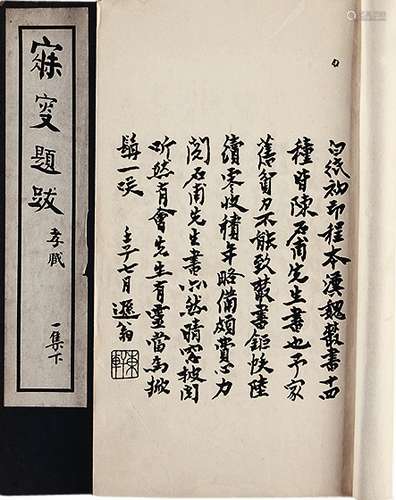 白紙初印程本漢魏叢書十四
種皆陳石甫先生書也予家
舊貧力不能致叢書鉅帙陸
續零收積年略備頗費心力
閱石甫先生書亦然晴窗披閱
听然有會先生有靈當為掀
髯一咲 壬子七月 遜翁
東軒
寐叟題跋
孝臧
一集下